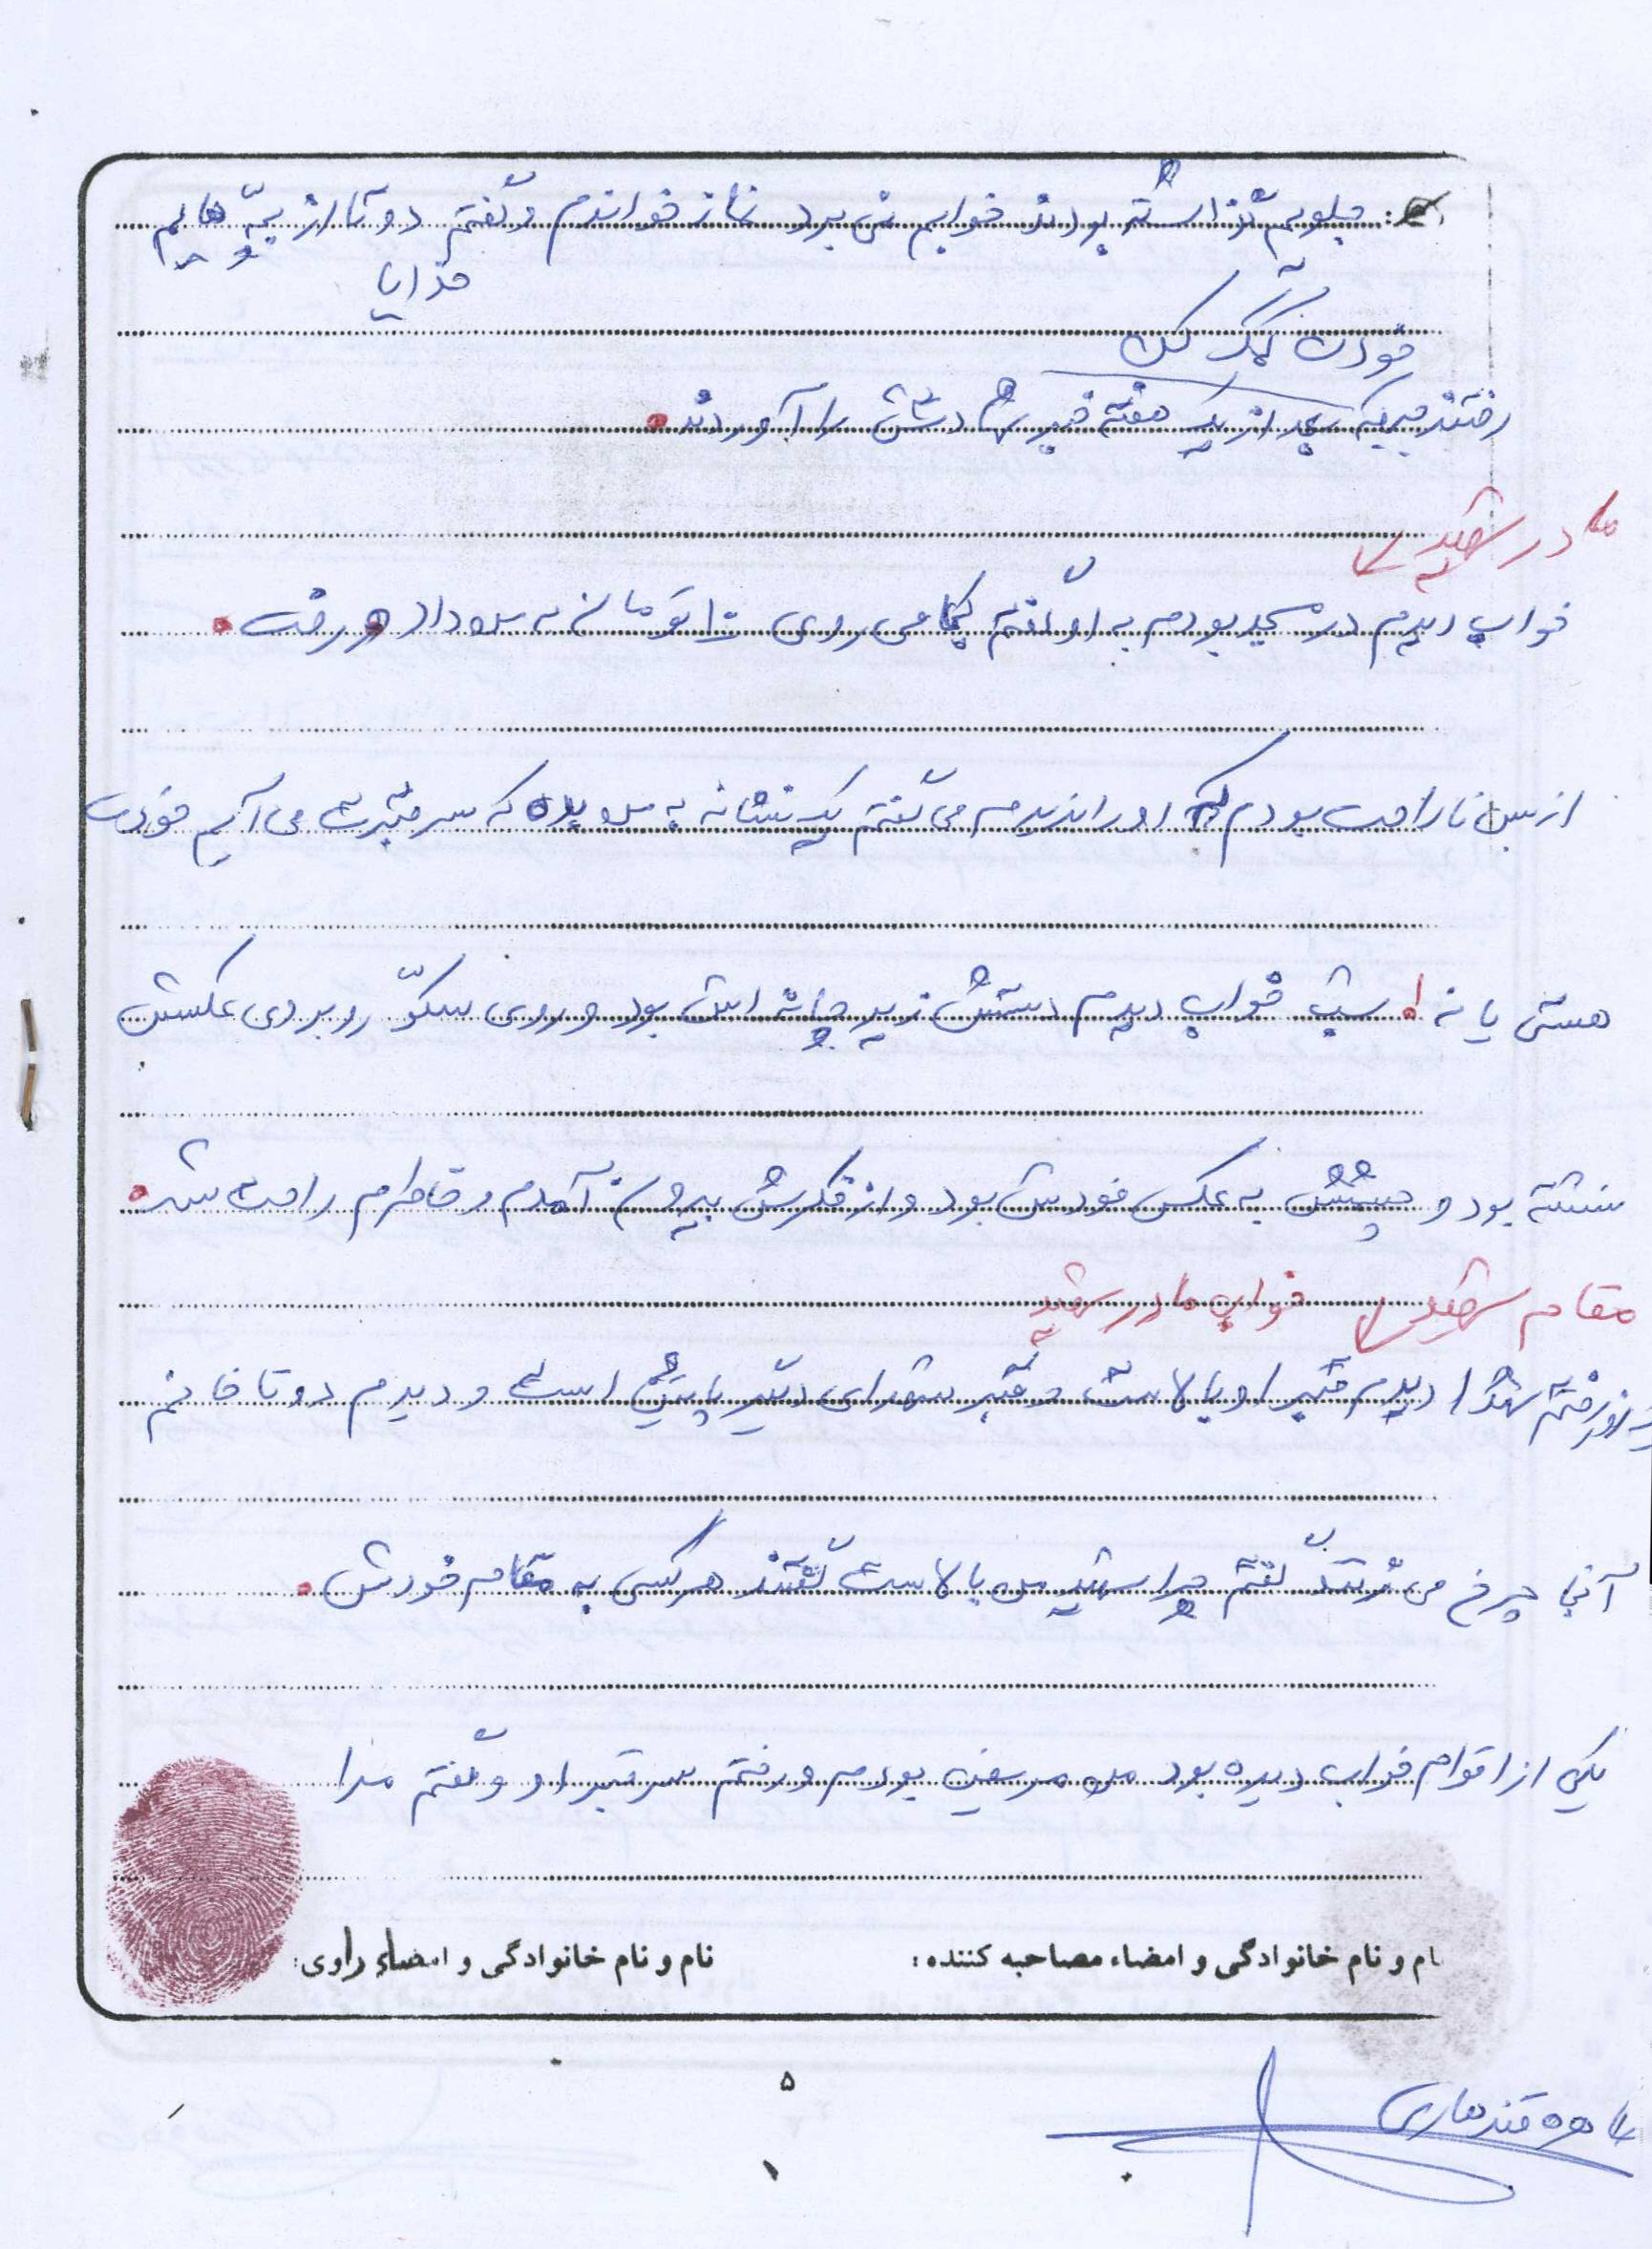 جلویم گذاشته بودند خوابم نمی برد نماز خواندم و گفتم دو تا از بچه هایم
خدایا
خودت کمک کن
رفتند جبهه بعد از یک هفته خبر شهادتش را آوردند.
مادر شهید
خواب دیدم در مسجد بودم به او گفتم کجا می روی تا تومان به من داد و رفت.
از بس ناراحت بودم که او را ندیدم می گفتم یک نشانه به من بده که سر قبرت می آیم خودت
هستی یا نه! شب خواب دیدم دستش زیر چانه اش بود و روی سکو روبروی عکسش
نشسته بود و چشمش به عکس خودش بود و از فکرش بیرون آمدم و خاطرم راحت شد.
مقام شهید خواب مادر شهید
روز رفتم شهدا دیدم قبر او بالاست و قبر شهدای دیگر پایین است و دیدم دو تا خانم
آنجا چرخ می زنند گفتم چرا شهید من بالاست گفتند هر کسی به مقام خودش.
یکی از اقوام خواب دیده بود من مریض بودم و رفتم سر قبر او و گفتم مرا
نام و نام خانوادگی و امضاء مصاحبه کننده: نام و نام خانوادگی و امضاء راوی:
طاهره قندهاری
۵